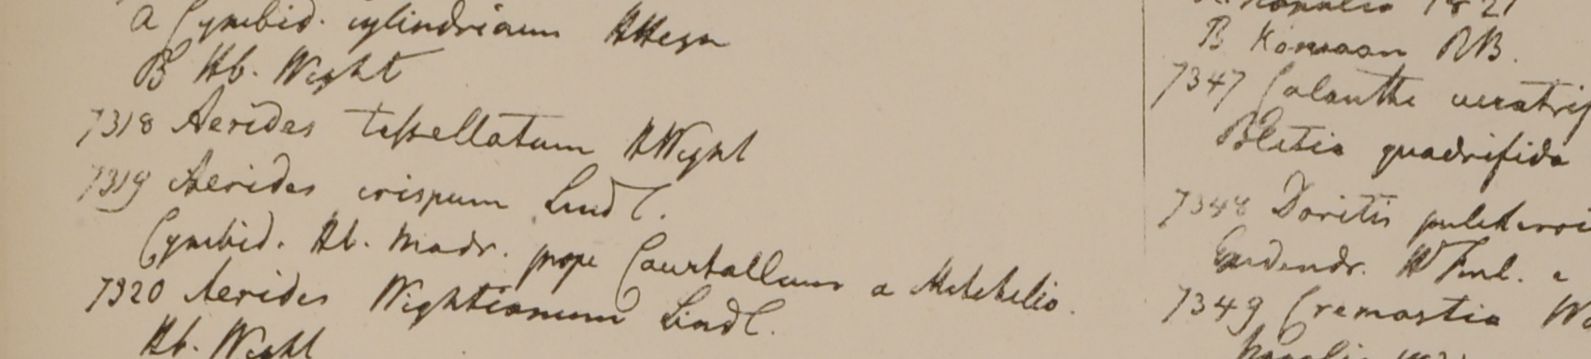 a Cymbid. cylindricum HHeyn
B Hb. Wight
7318 Aerides tessellatum HWight
7319 Aerides crispum Lindl.
Cymbid. Hb. Madr. prope Courtallum a
7320 Aerides Wightianum Lindl.
Hb. Wight
1821
B Kamaon RB.
7347 Calanthe veratrif
Bletia quadrifida
7348 Doritis pulcherri
Epidendr. HFinl.
7349 Cremastra Wa